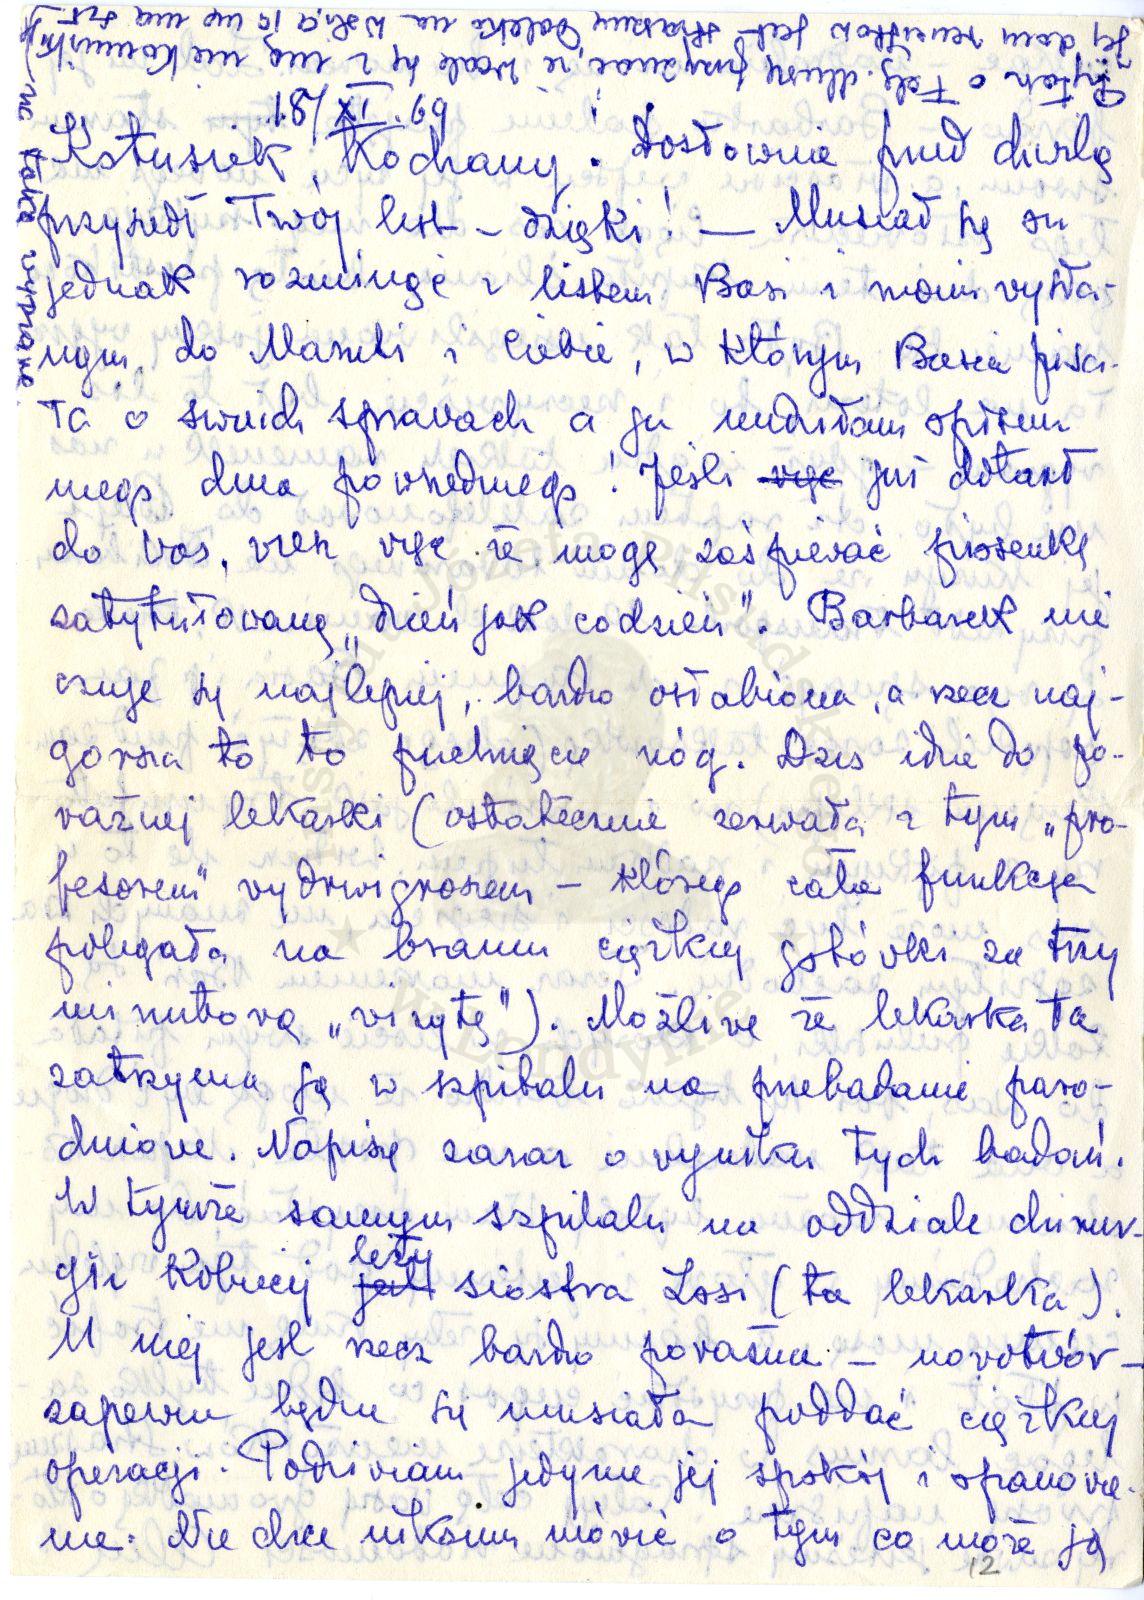 18/XI.69
Kotusiek Kochany! Dosłownie przed chwilą
przyszedł Twój list – dzięki! — Musiał się on
jednak rozminąć z listem Basi i moim wysła-
nym do Maruli i Ciebie, w którym Basia pisa-
ła o swoich sprawach a ja nudziłam opisem
mego dnia powszedniego! Jeśli więc już dotarł
do Was, wiesz więc że mogę zaśpiewać piosenkę
zatytułowaną „dzień jak codzień". Barbarek nie
czuje się najlepiej, bardzo osłabiona, a rzecz naj-
gorsza to to puchnięcie nóg. Dziś idzie do po-
ważnej lekarki (ostatecznie zerwała z tym „pro-
fesorem" wydrwigroszem – którego cała funkcja
polegała na braniu ciężkiej gotówki za trzy
minutową „wizytę"). Możliwe że lekarka ta
zatrzyma ją w szpitalu na przebadanie paro-
dniowe. Napiszę zaraz o wyniku tych badań.
W tymże samym szpitalu na oddziale chirur-
gii kobiecej jest leży siostra Losi (ta lekarka).
U niej jest rzecz bardzo poważna – nowotwór –
zapewne będzie się musiała poddać ciężkiej
operacji. Podziwiam jedynie jej spokój i opanowa-
nie. Nie chce nikomu mówić o tym co może ją
12
Pytasz o Felę. Muszę przyznać, że wcale się z nią nie komunik.
Jej dom rencistów jest strasznie daleko na Woli, a ja nie mam sił
na takie wyprawy.
Józefa Piłsudskiego
w Londynie